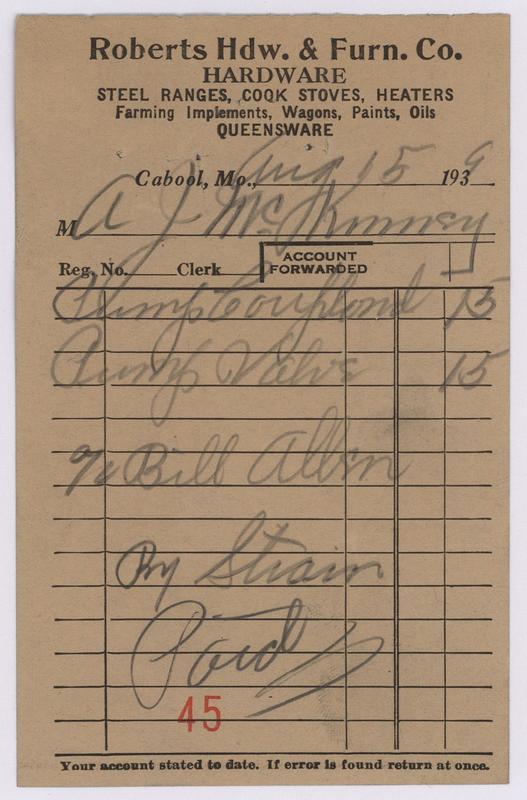 Roberts Hdw. & Furn. Co.
HARDWARE
STEEL RANGES, COOK STOVES, HEATERS
Farming Implements, Wagons, Paints, Oils
QUEENSWARE
Cabool, Mo., Aug 15 1939
M A J McKinney
Reg. No. Clerk ACCOUNT FORWARDED
Pump 75
Pump Valve 15
% Bill Allen
By Strain
Paid
45
Your account stated to date. If error is found return at once.